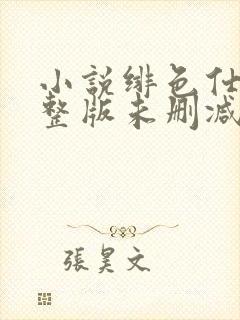 小説绯色仕
整版未删减
張昊文